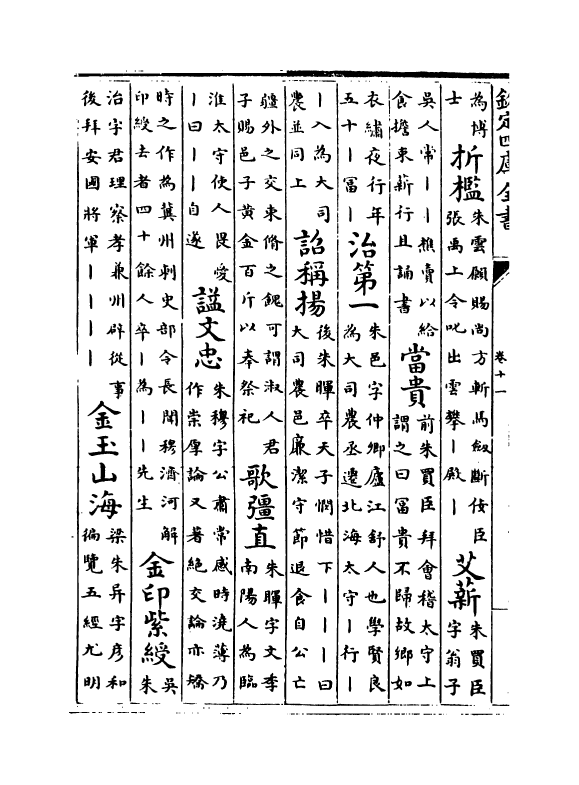 欽定四庫全書 卷十一
為博
士
折檻
朱雲願賜尚方斬馬劔斷佞臣
張禹上令叱出雲攀丨殿丨
艾薪
朱買臣
字翁子
吳人常丨丨樵賣以給
食擔束薪行且誦書
當貴
前朱買臣拜會稽太守上
謂之曰冨貴不歸故鄉如
衣繡夜行年
五十丨冨丨
治第一
朱邑字仲卿廬江舒人也學賢良
為大司農丞遷北海太守丨行丨
丨入為大司
農並同上
詔稱揚
後朱暉卒天子憫惜下丨丨丨曰
大司農邑廉潔守節退食自公亡
疆外之交束脩之餽可謂淑人君
子賜邑子黃金百斤以奉祭祀
歌彊直
朱暉字文季
南陽人為臨
淮太守使人畏愛
丨曰丨丨自遂
諡文忠
朱穆字公肅常感時澆薄乃
作崇厚論又著絶交論亦矯
時之作為冀州刺史部令長聞穆濟河解
印綬去者四十餘人卒丨為丨丨先生
金印紫綬
吳
朱
治字君理察孝兼州辟從事
後拜安國將軍丨丨丨丨
金玉山海
梁朱异字彥和
徧覽五經尤明